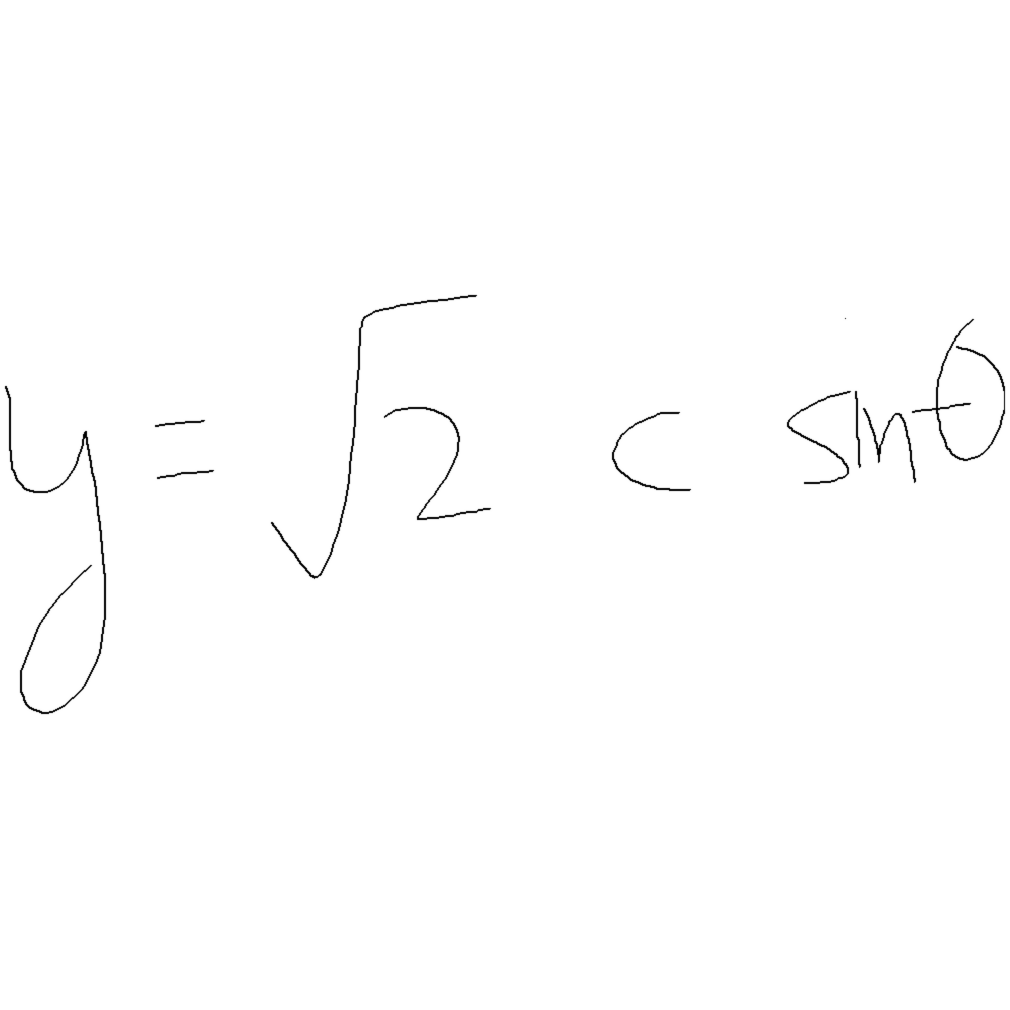 y = √2 c sin θ